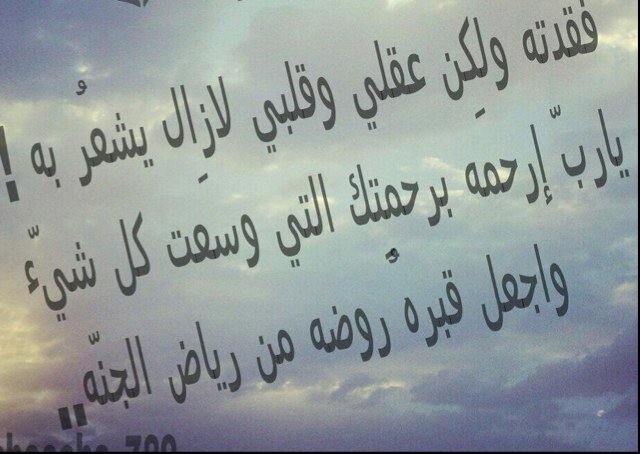 فقدته ولِكن عقلي وقلبي لازِال يشعرُ به !
ياربّ إرحمه برحمتك التي وسعت كل شيءّ
واجعل قبره رُوضه من رياض الجنّه,,